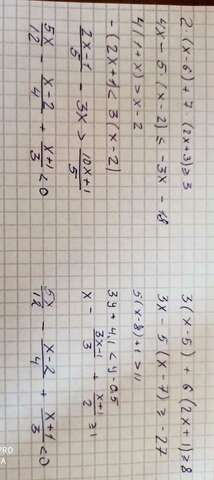 2·(x-6)+7(2x+3)≥3
4x-5·(x-2)≤-3x-18
4(1+x)>x-2
-(2x+1)<3(x-2)
(2x-1)/5 - 3x > (10x+1)/5
5x/12 - (x-2)/4 + (x+1)/3 < 0
3(x-5)+6(2x+1)≥8
3x-5(x-7)≥-27
5(x-8)+1>11
3y+4,1<y-0,5
x - (3x-1)/3 + (x+1)/2 ≥1
5x/12 - (x-2)/4 + (x+1)/3 <0